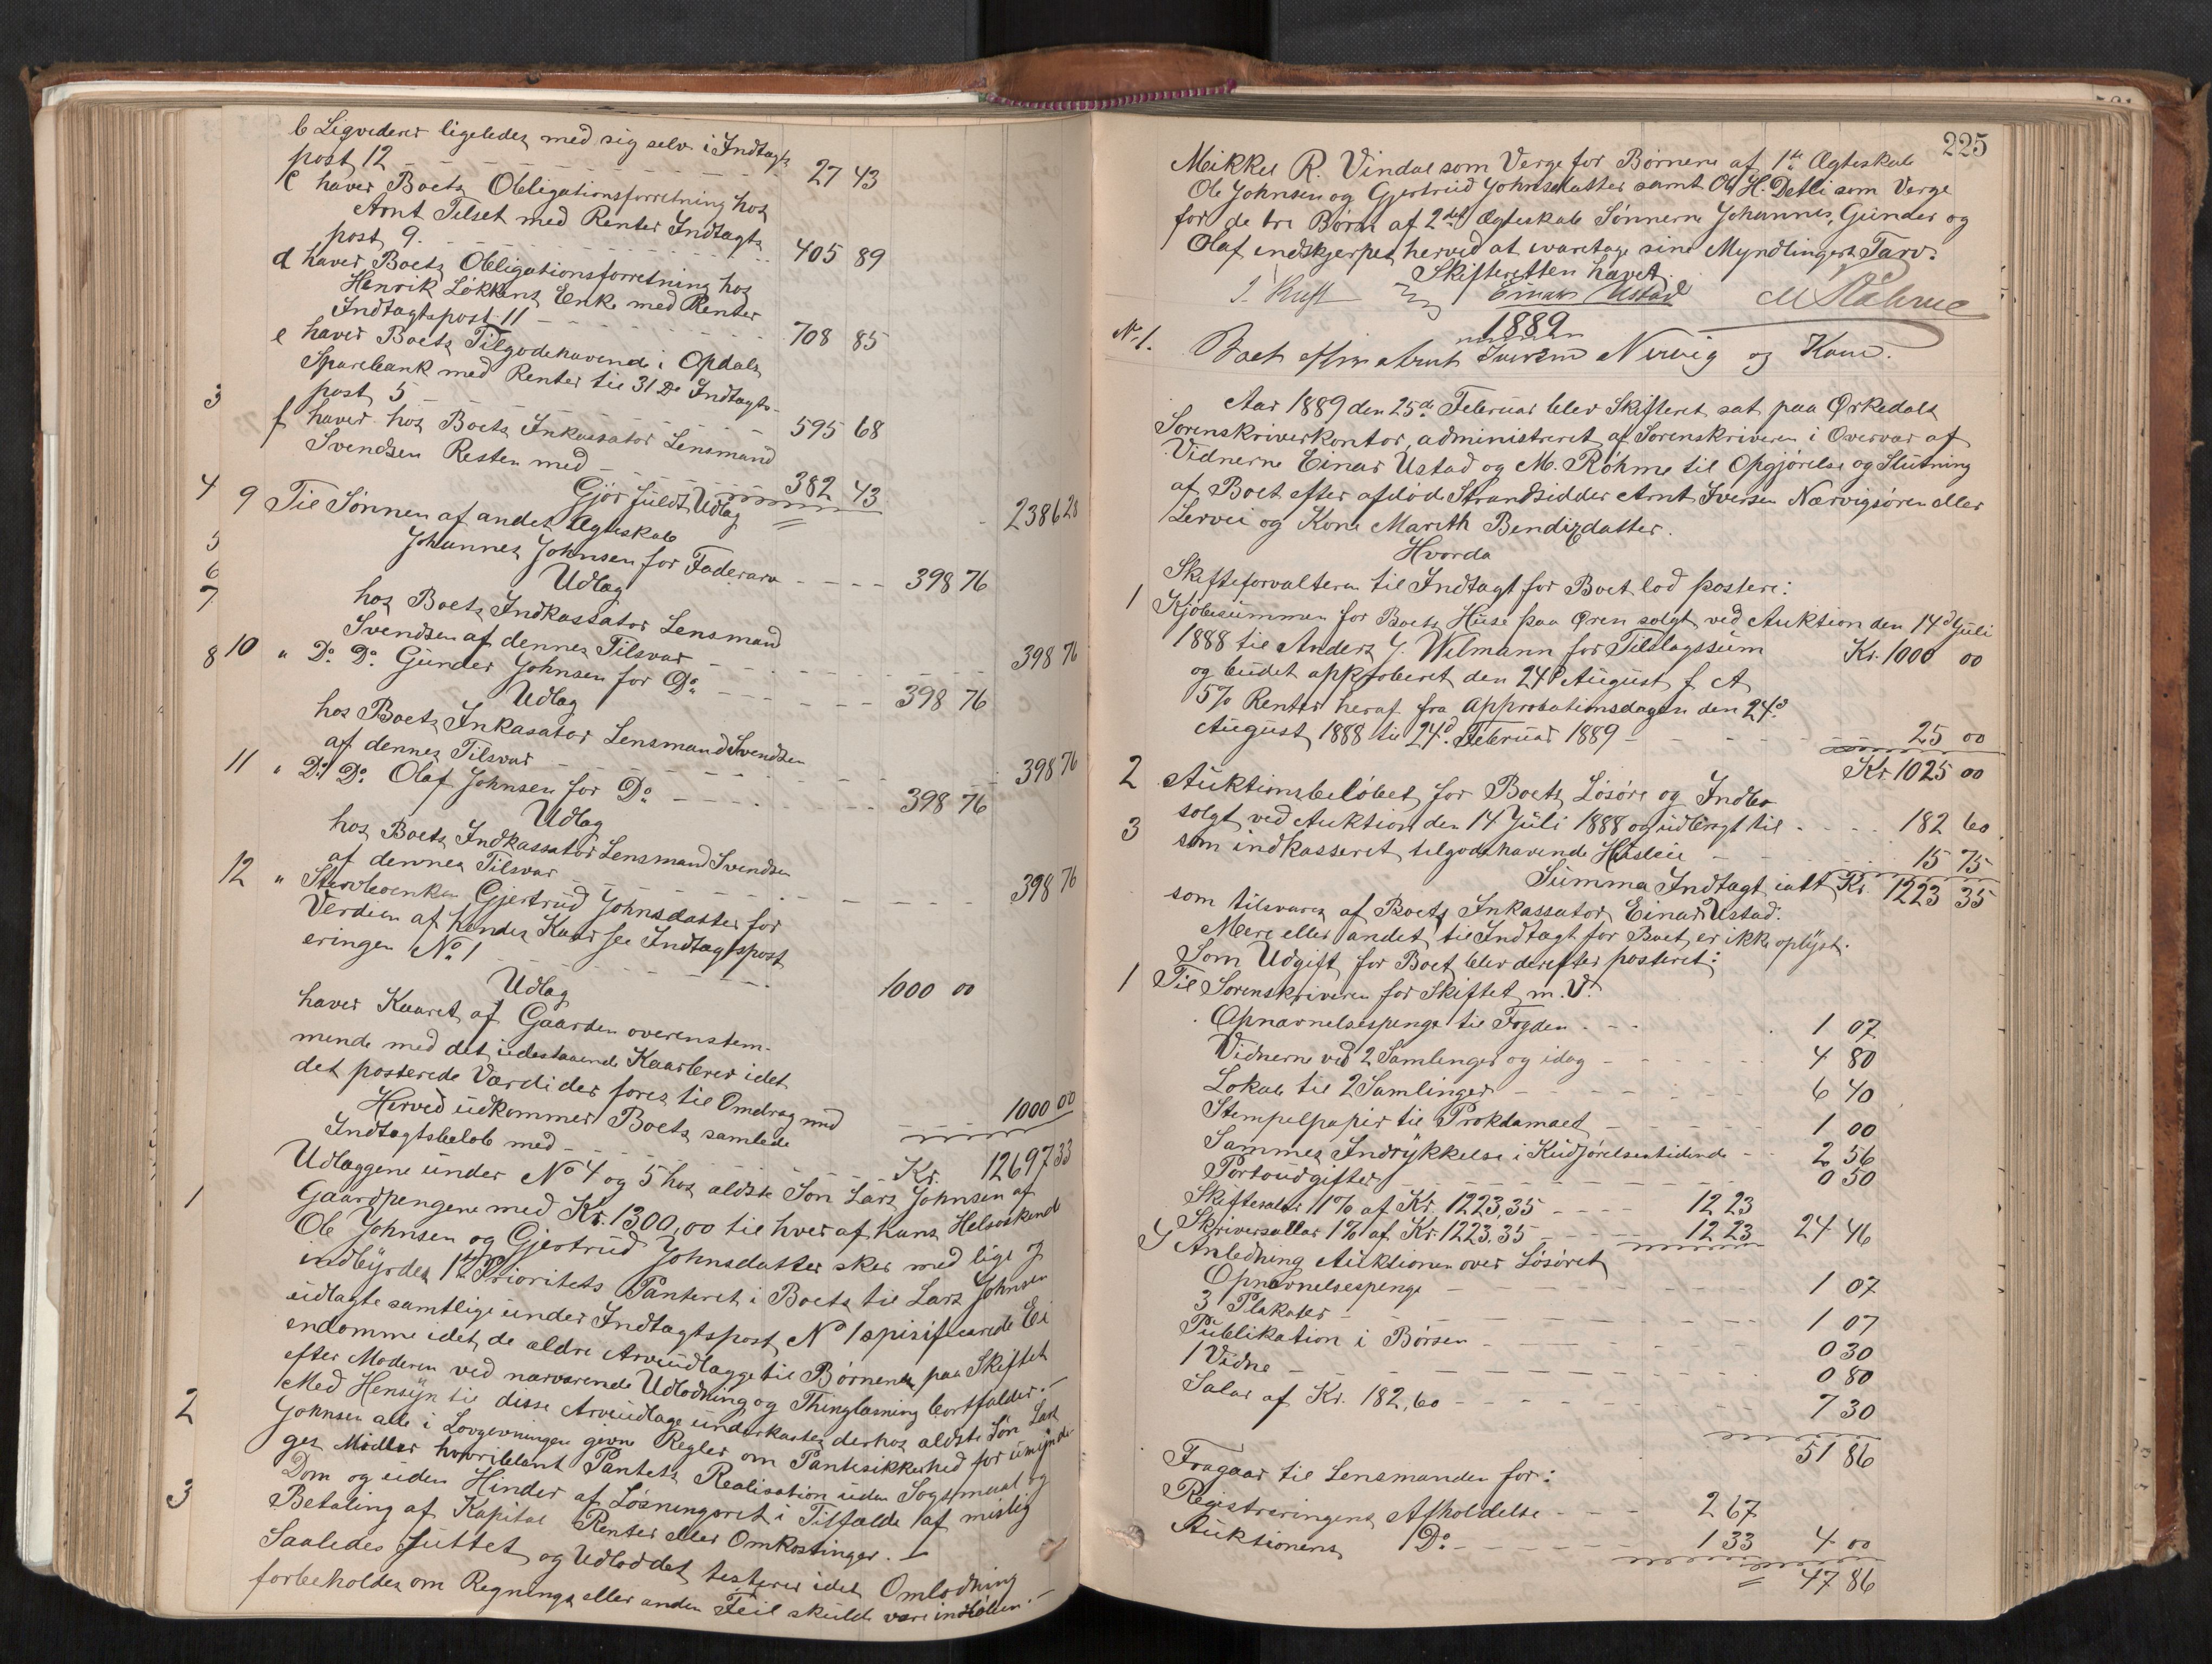 b Liqviderer ligeledes med sig selv i Indtægts
post 12 27 43
c haver Boets Obligationsforretning hos
Arnt Telset med Renter Indtægts
post 9. 405 89
d haver Boets Obligationsforretning hos
Henrik Løkkens Enke med Renter
Indtægtspost 11 708 85
e haver Boets Tilgodehavende i Opdals
Sparebank med Renter til 31 De Indtægts-
post 5 595 68
3
f haver hos Boets Inkassator Lensmand
Svendsen Resten med 382 43
Gjør fuldt Udlæg 2386 28
4
9 Til Sønnen af andet Ægteskab
Johannes Johnsen for Faderarv 398 76
5
Udlæg
6
hos Boets Indkassator Lensmand
7
Svendsen af dennes Tilsvar 398 76
8
10 " Do Do Gunder Johnsen for Do 398 76
Udlæg
hos Boets Inkasator Lensmand Svendsen
af dennes Tilsvar 398 76
11 " Do Do Olaf Johnsen for Do 398 76
Udlæg
hos Boets Indkassator Lensmand Svendsen
af dennes Tilsvar 398 76
12 " Stervboenken Gjertrud Johnsdatter for
Verdien af hendes Kaar see Indtægtspost
eringen No 1 1000 00
Udlæg
haver Kaaret af Gaarden overenstem-
mende med det udestaaende Kaarbrev idet
det posterede Værdi der føres til Omdrag med 1000 00
Herved udkommer Boets samlede
Indtægtsbeløb med Kr. 12697 33
1
Udlæggene under No 4 og 5 hos ældste Søn Lars Johnsen af
Gaardpengene med Kr. 1300,00 til hver af hans Helsøskende
Ole Johnsen og Gjertrud Johnsdatter sker med lige og
indbyrdes 1ste Prioritets Panteret i Boets til Lars Johnsen
udlagte samtlige under Indtægtspost No 1 spisificerede Ei
endomme idet de ældre Arveudlægge til Børnene paa Skiftet
efter Moderen ved nærværende Udlodning og Thinglæsning bortfalder.
2
Med Hensyn til disse Arveudlæge underkastes derhos ældste Søn Lars
Johnsen alle i Lovgivningen givne Regler om Pantesikkerhed for umyndi-
ges Midler hvoriblant Pantets Realisation uden Søgsmaal og
3
Dom og uden Hinder af Løsningsret i Tilfælde af mislig
Betaling af Kapital Renter eller Omkostinger.
Saaledes sluttet og Udloddet testeres idet Omlodning
forbeholdes om Regnings eller anden Feil skulde være indløben.
225
Mikkel R. Vindal som Verge for Børnene af 1ste Ægteskab
Ole Johnsen og Gjertrud Johnsdatter samt Ole H. Detli som Verge
for de tre Børn af 2det Ægteskab Sønnerne Johannes, Gunder og
Olaf indskjerpes herved at varetage sine Myndlingers Tarv.
Skifteretten hævet.
Einar Ustad M Røhme
1889
No 1. Boet efter Arnt Iversen Nervig og Kone.
Aar 1889 den 25de Februar blev Skifteret sat paa Ørkedals
Sorenskriverkontor, administreret af Sorenskriveren i Overvær af
Vidnerne Einar Ustad og M. Røhme til Opgjørelse og Slutning
af Boet efter afdøde Strandsidder Arnt Iversen Nærvigsøren eller
Lervei og Kone Marith Bendixdatter.
Hvorda
Skifteforvalteren til Indtægt for Boet lod postere:
1 Kjøbesummen for Boets Huse paa Øren solgt ved Auktion den 14d Juli
1888 til Anders J. Wilmann for Tilslagssum Kr. 1000 00
og budet approberet den 24d August f A
5% Renter heraf fra Approbationsdagen den 24d
August 1888 til 24d Februar 1889 25 00
Kr 1025 00
2 Auktionsbeløbet for Boets Løsøre og Indbo
solgt ved Auktion den 14 Juli 1888 og udbragt til 182 60
3 som indkasseret tilgodehavende Husleie 15 75
Summa Indtægt ialt Kr 1223 35
som tilsvares af Boets Inkassator Einar Ustad.
Mere eller andet til Indtægt for Boet er ikke oplyst.
Som Udgift for Boet blev derefter posteret:
1 Til Sorenskriveren for Skiftet m. V.
Opnævnelsespenge til Fogden 1 07
Vidnerne ved 2 Samlinger og idag 4 80
Lokale til 2 Samlinger 6 40
Stempelpapir til Proklamaet 1 00
Sammes Indrykkelse i Kundjørelsestidende 2 56
Portoudgifter 0 50
Skiftesalær 1% af Kr. 1223,35 12 23
Skriversallær 1% af Kr 1223.35 12 23 24 46
I Anledning Auktionen over Løsøret
Opnævnelsespenge 1 07
3 Plakater 1 07
Publikation i Børsen 0 30
1 Vidne 0 80
Salær af Kr. 182,60 7 30
51 86
Fragaar til Lensmanden for:
Registreringens Afholdelse 2 67
Auktionens Do 1 33 4 00
47 86